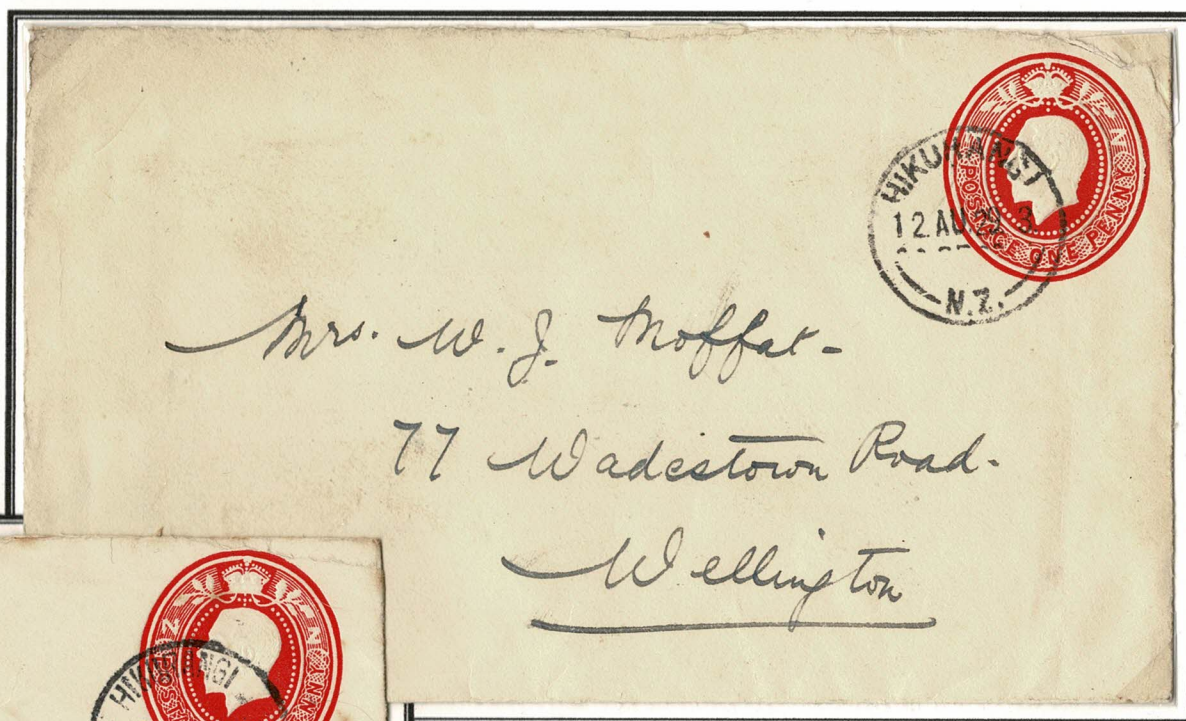 HIKURANGI
12.AU.29 3
N.Z.
POSTAGE ONE PENNY
Mrs. W. J. Moffat-
77 Wadestown Road.
Wellington
HIKURANGI